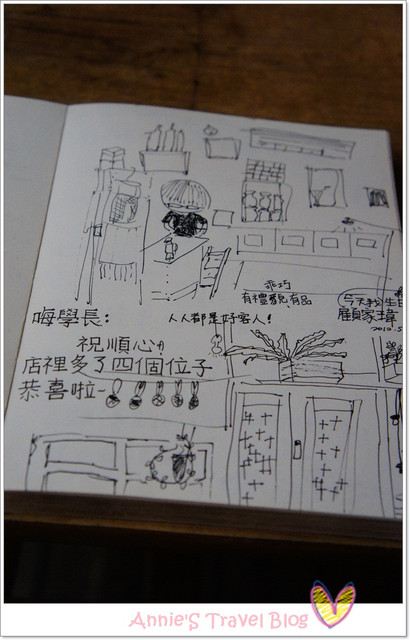 乖巧
有禮貌有品
今天我生日
顧家瑋
2010.5
嗨學長:
人人都是好客人!
祝順心!!
店裡多了四個位子
恭喜啦~
Annie'S Travel Blog